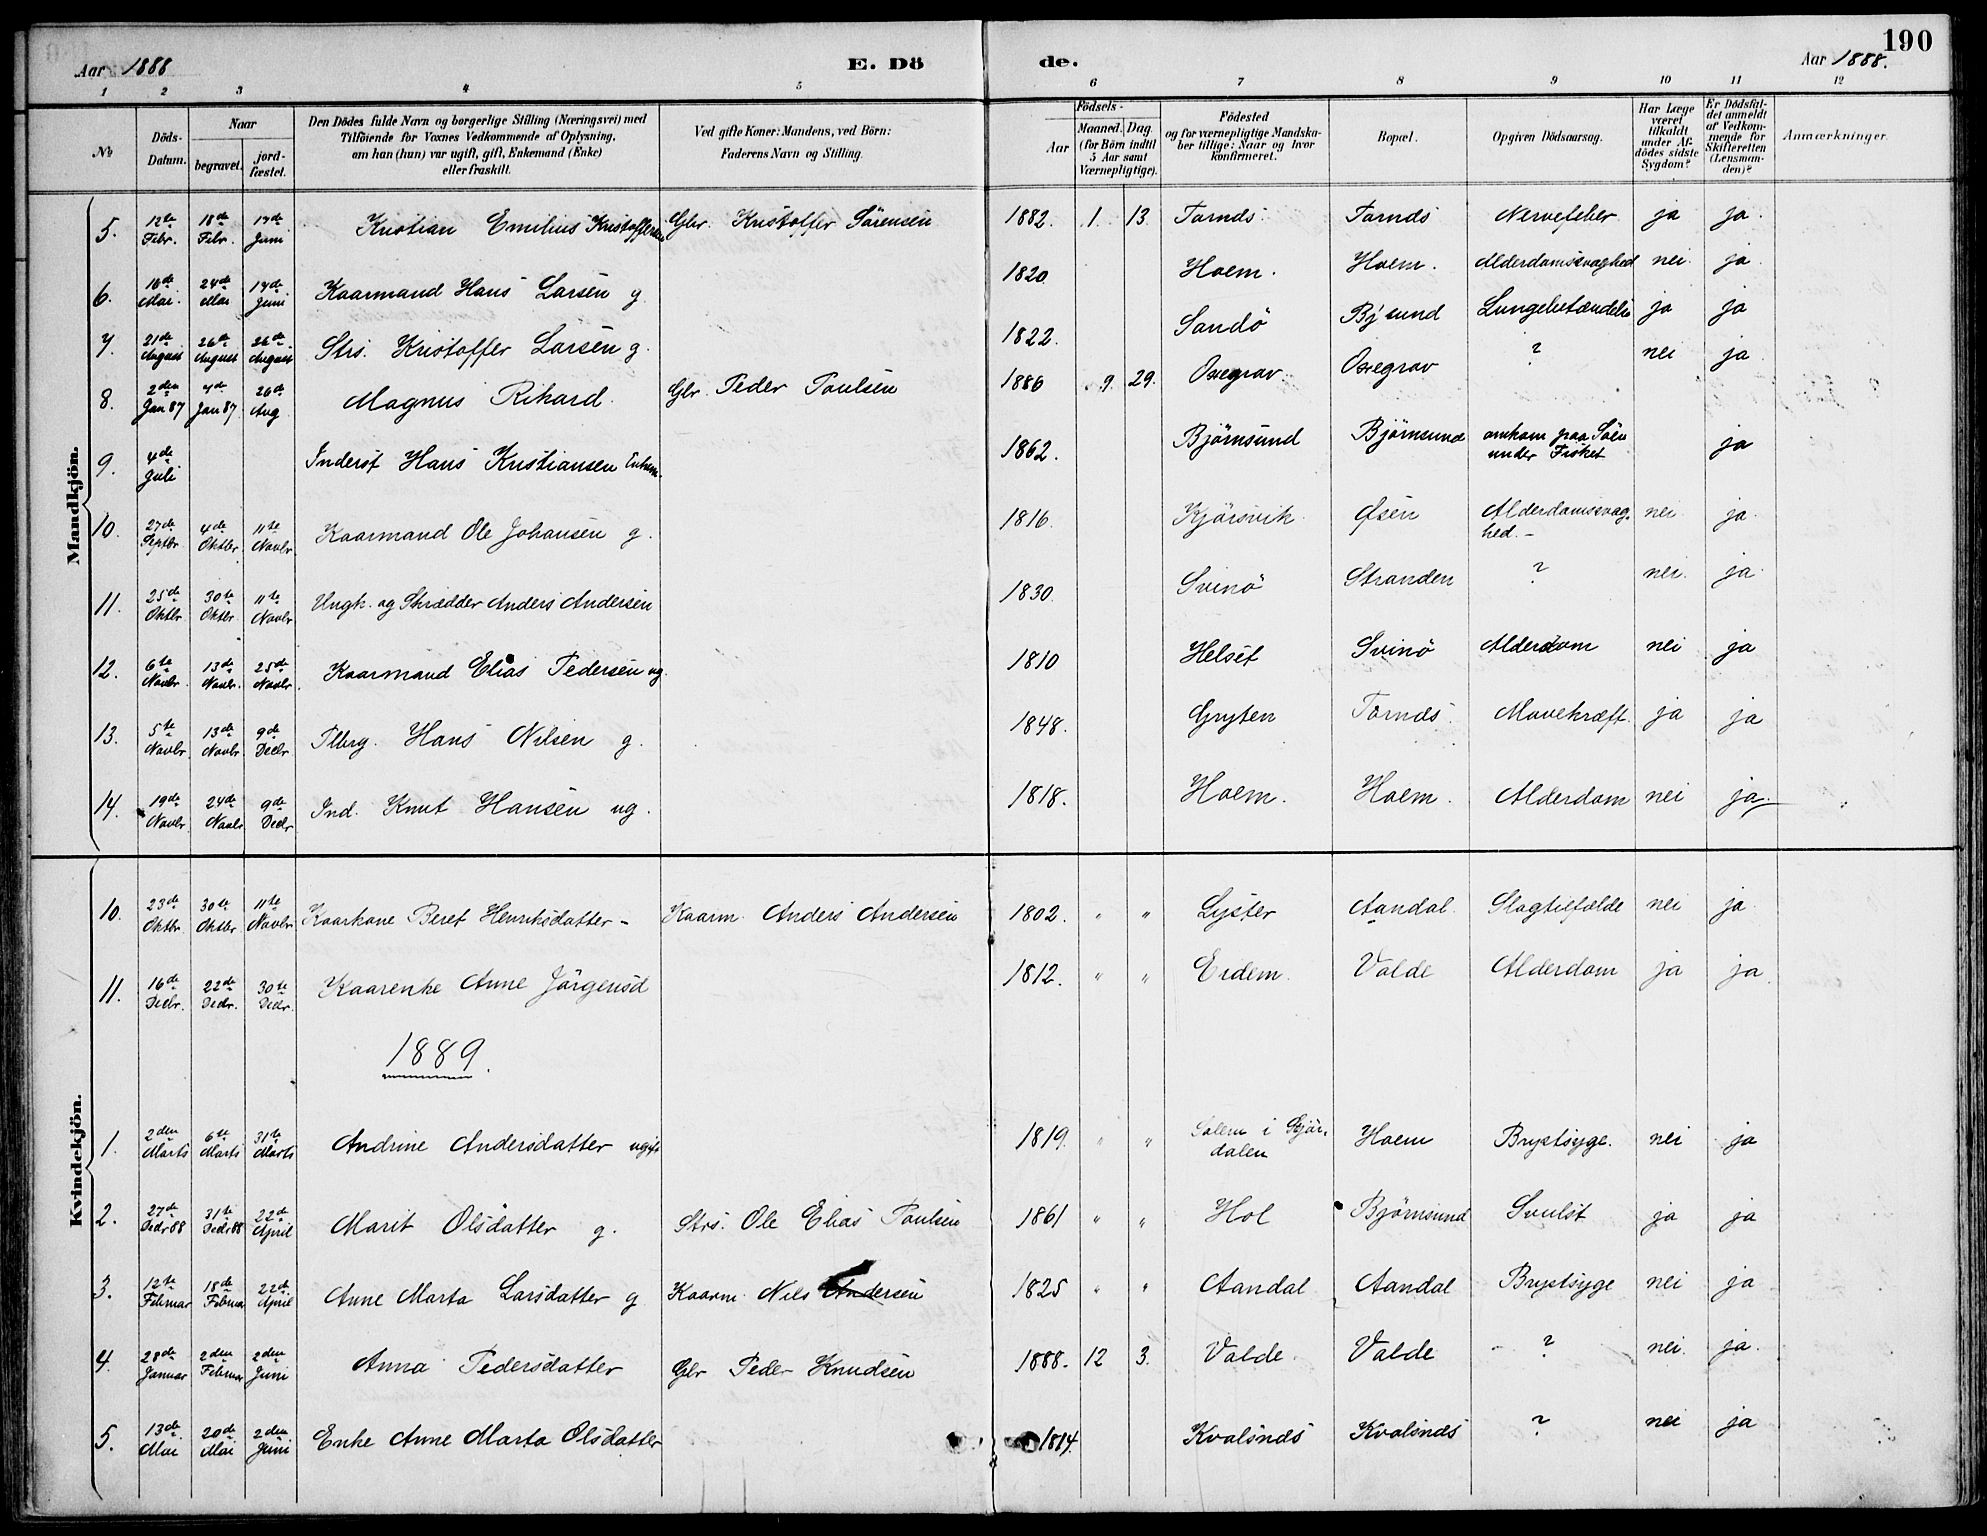 190
Aar 1888
E. Dö
de.
Aar 1888.
1 2 3 4 5 6 7 8 9 10 11 12
No
Döds-
Datum.
Naar
begravet.
jord-
fæstet.
Den Dödes fulde Navn og borgerlige Stilling (Næringsvei) med
Tilföiende for Voxnes Vedkommende af Oplysning,
om han (hun) var ugift, gift, Enkemand (Enke)
eller fraskilt.
Ved gifte Koner: Mandens, ved Börn:
Faderens Navn og Stilling.
Födsels-
Aar
Maaned. Dag.
(for Börn indtil
5 Aar samt
Værnepligtige).
Födested
og for værnepligtige Mandska-
ber tillige: Naar og hvor
konfirmeret.
Bopæl.
Opgiven Dödsaarsag.
Har Læge
været
tilkaldt
under Af-
dödes sidste
Sygdom?
Er Dödsfal-
det anmeldt
af Vedkom-
mende for
Skifteretten
(Lensman-
den)?
Anmærkninger.
Mandkjön.
5. 12te Febr. 18de Febr. 17de Juni Kristian Emilius Kristoffersen Gbr. Kristoffer Sörensen 1882. 1. 13. Tornds. Tornds Nervefeber ja ja.
6. 16de Mai. 24de Mai 17de Juni Kaarmand Hans Larsen g. 1820. Hoem. Hoem. Alderdomssvaghed nei. ja.
7. 21de August 26de August 26de August Strs. Kristoffer Larsen g. 1822. Sandö Bjsund Lungebetændelse ja ja
8. 2den Jan 87 4de Jan 87. 26de Aug Magnus Rikard. Gbr. Peder Paulsen 1886 9. 29. Oxegrav Oxegrav ? nei ja
9. 4de Juli Inderst Hans Kristiansen Enkem. 1862. Björnsund Björnsund omkom paa Söen
under Fisket ja
10. 27de Septbr. 4de Oktbr. 11te Novbr. Kaarmand Ole Johansen g. 1816. Kjörsvik Øsen Alderdomssvag-
hed. - nei ja.
11. 25de Oktbr. 30te Oktbr. 11te Novbr Ungk. og Skrædder Anders Andersen 1830. Svinö Stranden ? nei. ja.
12. 6te Novbr. 13de Novbr. 25de Novbr. Kaarmand Elias Pedersen ug. 1810 Helset Svinö Alderdom nei ja
13. 5te Novbr. 13de Novbr 9de Decbr Plbrg. Hans Nilsen g. 1848. Gryten Tornds. Mavekræft. ja ja
14. 19de Novbr. 24de Novbr. 9de Decbr Ind. Knut Hansen ug. 1818. Hoem. Hoem. Alderdom nei ja.
Kvindekjön.
10. 23de Oktbr. 30te Oktbr 11te Novbr. Kaarkone Beret Henriksdatter - Kaarm. Anders Andersen 1802. " " Lyster Aandal. Slagtilfælde nei ja.
11. 16de Decbr. 22de Decbr. 30te Decbr. Kaarenke Anne Jörgensd 1812. " " Eidem. Valde Alderdom ja ja.
1889.
1. 2den Marts 6te Marts 31te Marts Andrine Andersdatter ugift 1819. " " Solem i
dalen Hoem Brystsyge. nei ja
2. 27de Decbr 88 31te Decbr 88 22de April Marit Olsdatter g. Strs. Ole Elias Paulsen 1861 " " Hol Björnsund Svulst ja ja
3. 12te Februar 18de Februar 22de April Anne Marta Larsdatter g Kaarm. Nils Andersen 1825 " " Aandal Aandal Brystsyge nei ja
4. 28de Januar 2den Februar 2den Juni Anna Pedersdatter Gbr Peder Knudsen 1888. 12 3. Valde. Valde ? nei. ja.
5. 13de Mai 20de Mai 2den Juni Enke Anne Marta Olsdatter 1814. Kvalsnds Kvalsnds ? nei ja